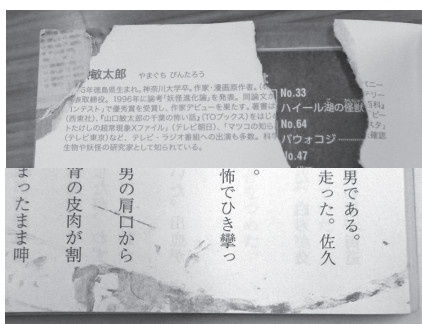 敏太郎 やまぐち びんたろう
5年徳島県生まれ。神奈川大学卒。作家・漫画原作者。(
表取締役。1996年に論考「妖怪進化論」を発表。同論文
ンテスト」で優秀賞を受賞し、作家デビューを果たす。著書は
(西東社)、「山口敏太郎の千葉の怖い話」(TOブックス)をはじ
トたけしの超常現象Xファイル」(テレビ朝日)、「マツコの知ら
(テレビ東京)など、テレビ・ラジオ番組への出演も多数。科学
生物や妖怪の研究家として知られている。
No.33
ハイール湖の怪獣
No.64
パウォコジ
No.47
確認
男である。
走った。佐久
。
怖でひき攣っ
男の肩口から
背の皮肉が割
まったまま呻